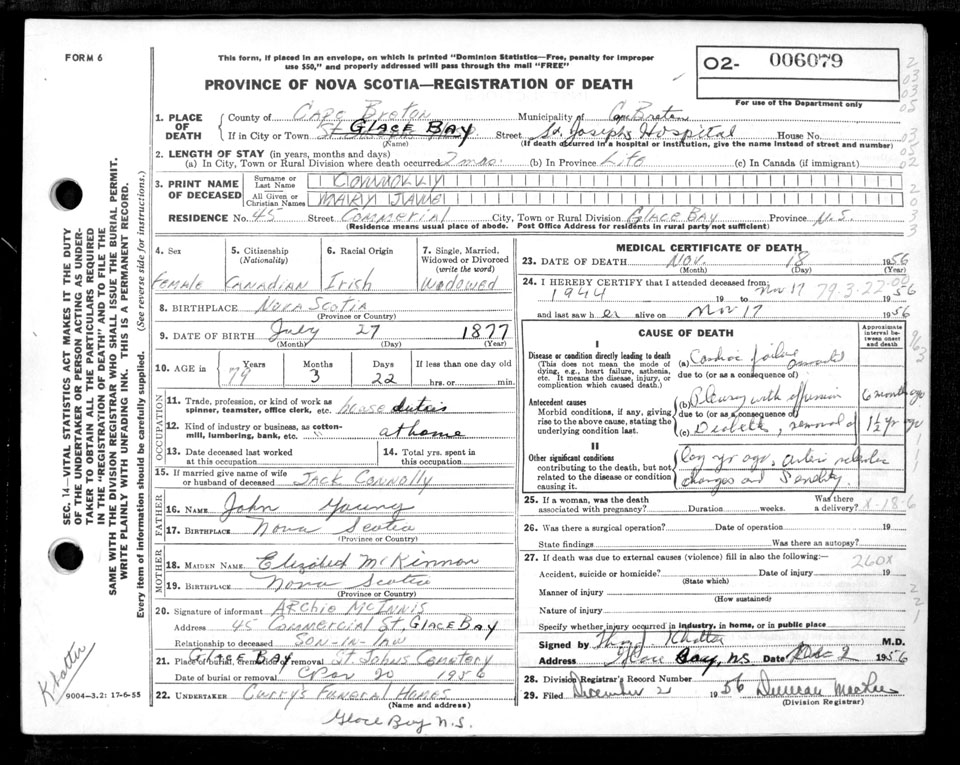 FORM 6
This form, if placed in an envelope, on which is printed "Dominion Statistics—Free, penalty for improper
use $50," and properly addressed will pass through the mail "FREE"
PROVINCE OF NOVA SCOTIA—REGISTRATION OF DEATH
O2- 006079
For use of the Department only
1. PLACE OF DEATH
County of Cape Breton Municipality of C Breton
If in City or Town GLACE BAY Street St. Josephs Hospital House No.
(Name) (If death occurred in a hospital or institution, give the name instead of street and number)
2. LENGTH OF STAY (in years, months and days)
(a) In City, Town or Rural Division where death occurred 2 mos. (b) In Province Life (c) In Canada (if immigrant)
3. PRINT NAME OF DECEASED
Surname or Last Name CONNOLLY
All Given or Christian Names MARY JANE
RESIDENCE No. 45 Street Commerial City, Town or Rural Division GLACE BAY Province N.S.
(Residence means usual place of abode. Post Office Address for residents in rural parts not sufficient)
4. Sex 5. Citizenship (Nationality) 6. Racial Origin 7. Single, Married, Widowed or Divorced (write the word)
Female Canadian Irish Widowed
8. BIRTHPLACE Nova Scotia
(Province or Country)
9. DATE OF BIRTH July 27 1877
(Month) (Day) (Year)
10. AGE in Years Months Days If less than one day old
79 3 22 hrs. or min.
OCCUPATION
11. Trade, profession, or kind of work as
spinner, teamster, office clerk, etc. house duties
12. Kind of industry or business, as cotton-
mill, lumbering, bank, etc. at home
13. Date deceased last worked at this occupation
14. Total yrs. spent in this occupation
15. If married give name of wife
or husband of deceased Jack Connolly
FATHER
16. NAME John Young
17. BIRTHPLACE Nova Scotia
(Province or Country)
MOTHER
18. MAIDEN NAME Elizabeth McKinnon
19. BIRTHPLACE Nova Scotia
(Province or Country)
20. Signature of informant Archie McInnis
Address 45 Commercial St, GLACE BAY
Relationship to deceased Son-in-law
21. Place of burial, cremation or removal GLACE BAY St. Johns Cemetery
Date of burial or removal 20 1956
22. UNDERTAKER Currys Funeral Homes
(Name and address)
Glace Bay N.S.
MEDICAL CERTIFICATE OF DEATH
23. DATE OF DEATH Nov. 18 1956
(Month) (Day) (Year)
24. I HEREBY CERTIFY that I attended deceased from:
1944 19 to Nov 17 1956
79-3-22-00
and last saw her alive on Nov 17 1956
CAUSE OF DEATH
Approximate interval between onset and death
I
Disease or condition directly leading to death
(This does not mean the mode of
dying, e.g., heart failure, asthenia,
etc. It means the disease, injury, or
complication which caused death.)
(a) Cardiac failure
due to (or as a consequence of)
Antecedent causes
Morbid conditions, if any, giving
rise to the above cause, stating the
underlying condition last.
(b) Pleurisy with effusion 6 months ago
due to (or as a consequence of)
(c) Diabetes, removal of 1½ yr ago
II
Other significant conditions
contributing to the death, but not
related to the disease or condition
causing it.
leg yr ago,
changes and Senility.
25. If a woman, was the death
associated with pregnancy? Duration weeks. Was there a delivery? X-18-6
26. Was there a surgical operation? Date of operation 19
State findings Was there an autopsy?
27. If death was due to external causes (violence) fill in also the following: 260X
Accident, suicide or homicide? Date of injury 19
(State which)
Manner of injury
(How sustained)
Nature of injury
Specify whether injury occurred in industry, in home, or in public place
Signed by Khattar M.D.
Address Glace Bay, NS Date Dec 2 1956
28. Division Registrar's Record Number
29. Filed December 2 1956 Duncan
(Division Registrar)
SEC. 14—VITAL STATISTICS ACT MAKES IT THE DUTY
OF THE UNDERTAKER OR PERSON ACTING AS UNDER-
TAKER TO OBTAIN ALL THE PARTICULARS REQUIRED
IN THE "REGISTRATION OF DEATH" AND TO FILE THE
SAME WITH THE DIVISION REGISTRAR WHO SHALL ISSUE THE BURIAL PERMIT.
WRITE PLAINLY WITH UNFADING INK. THIS IS A PERMANENT RECORD.
Every item of information should be carefully supplied. (See reverse side for instructions.)
Khattar
9004-3.2: 17-6-55